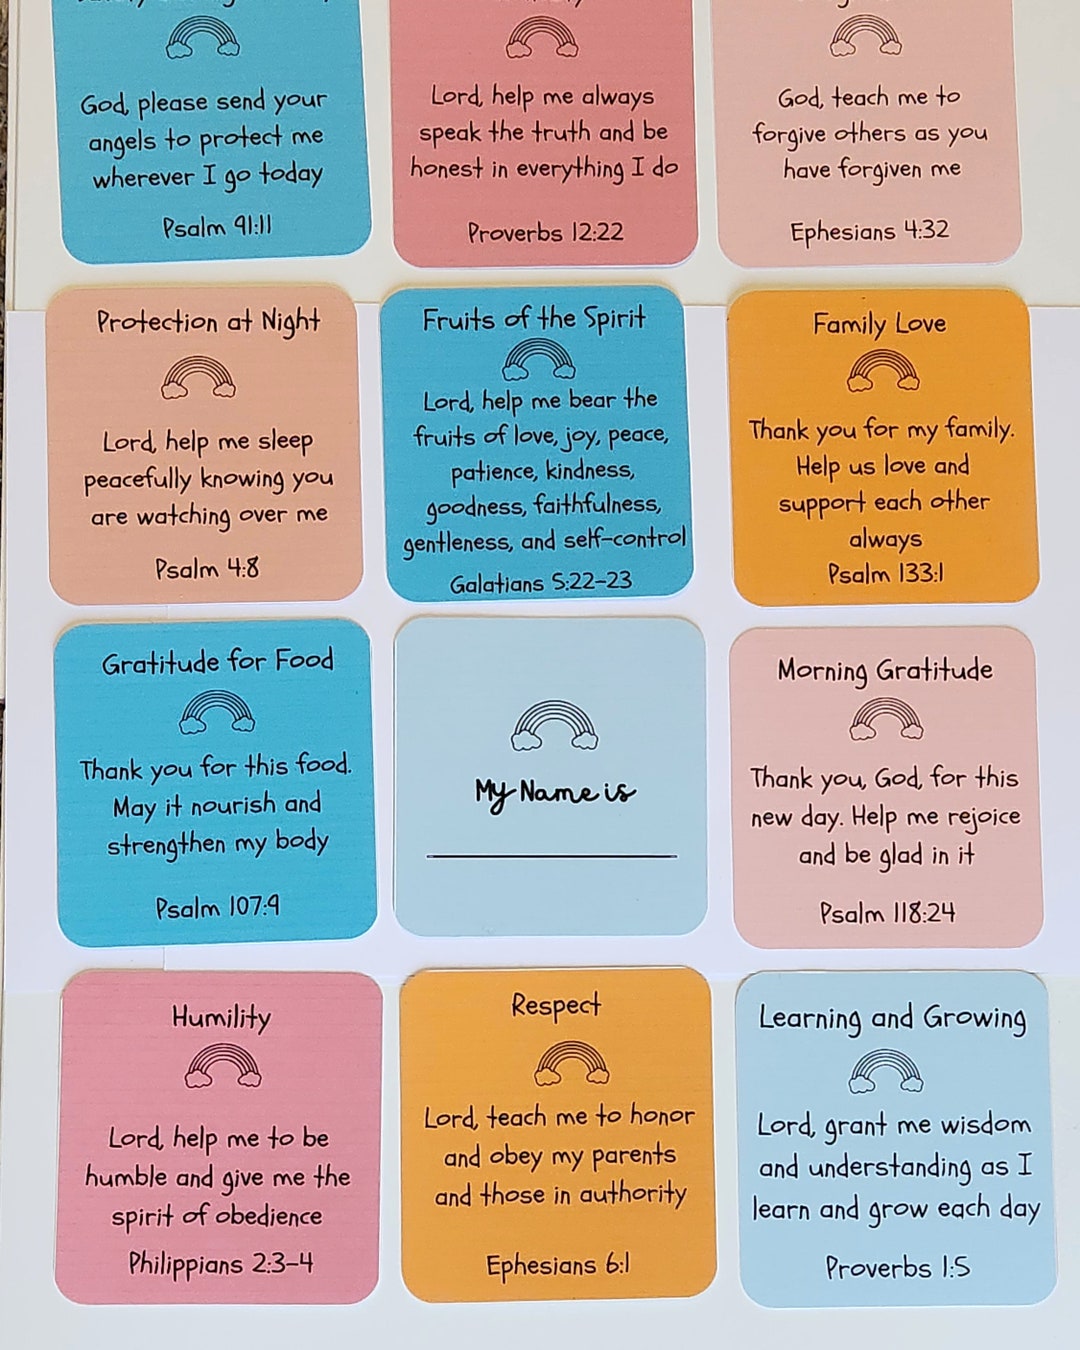 God, please send your
angels to protect me
wherever I go today
Psalm 91:11
Lord, help me always
speak the truth and be
honest in everything I do
Proverbs 12:22
God, teach me to
forgive others as you
have forgiven me
Ephesians 4:32
Protection at Night
Lord, help me sleep
peacefully knowing you
are watching over me
Psalm 4:8
Fruits of the Spirit
Lord, help me bear the
fruits of love, joy, peace,
patience, kindness,
goodness, faithfulness,
gentleness, and self-control
Galatians 5:22-23
Family Love
Thank you for my family.
Help us love and
support each other
always
Psalm 133:1
Gratitude for Food
Thank you for this food.
May it nourish and
strengthen my body
Psalm 107:9
My Name is
Morning Gratitude
Thank you, God, for this
new day. Help me rejoice
and be glad in it
Psalm 118:24
Humility
Lord, help me to be
humble and give me the
spirit of obedience
Philippians 2:3-4
Respect
Lord, teach me to honor
and obey my parents
and those in authority
Ephesians 6:1
Learning and Growing
Lord, grant me wisdom
and understanding as I
learn and grow each day
Proverbs 1:5